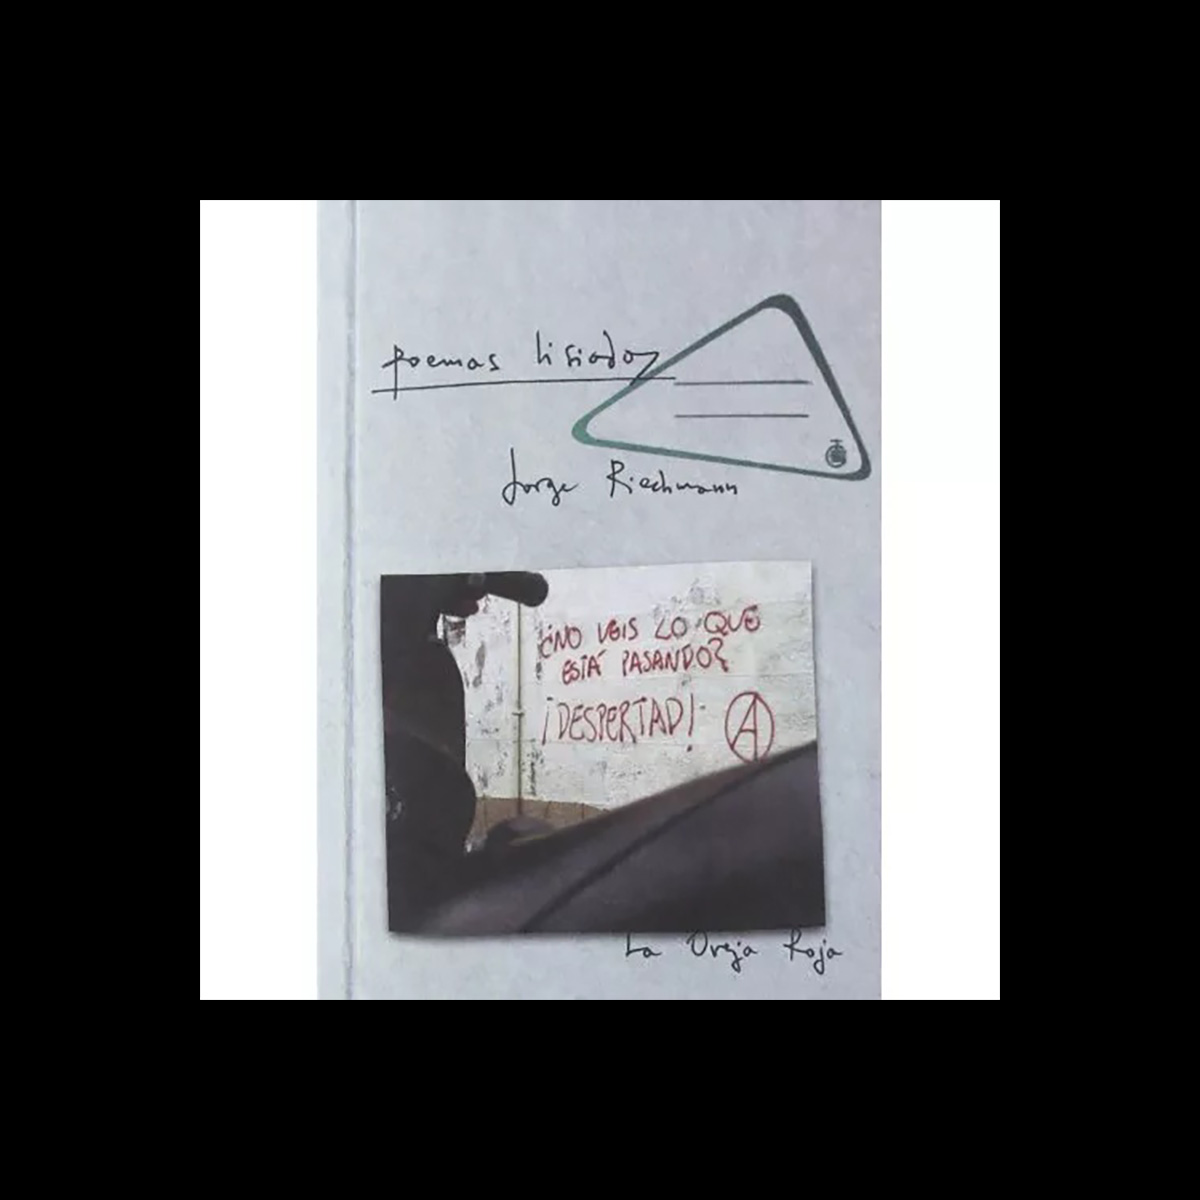 poemas lisiados
Jorge Riechmann
¿NO VEIS LO QUE
ESTÁ PASANDO?
¡DESPERTAD! A
La Oveja Roja